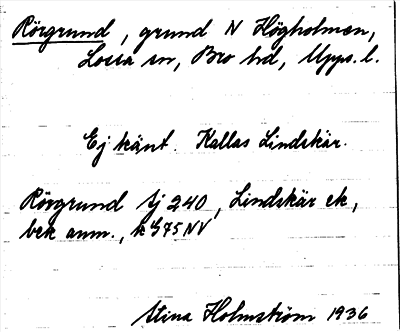 Rörgrund, grund N Högholmen,
Lossa sn, Bro hd, Upps. l.
Ej känt. Kallas Lindskär.
Rörgrund Sj 240, Lindskär ek,
bek anm., k G75NV
Stina Holmström 1936